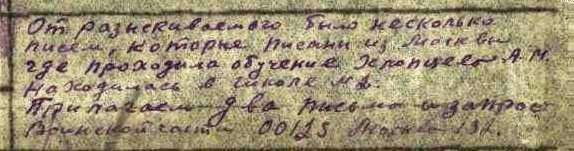 От разыскиваемого было несколько
писем, которые писаны из Москвы
где проходила обучение Хлопцева А.М.
находилась в школе
Прилагаем два письма и запрос
Воинской части Москва